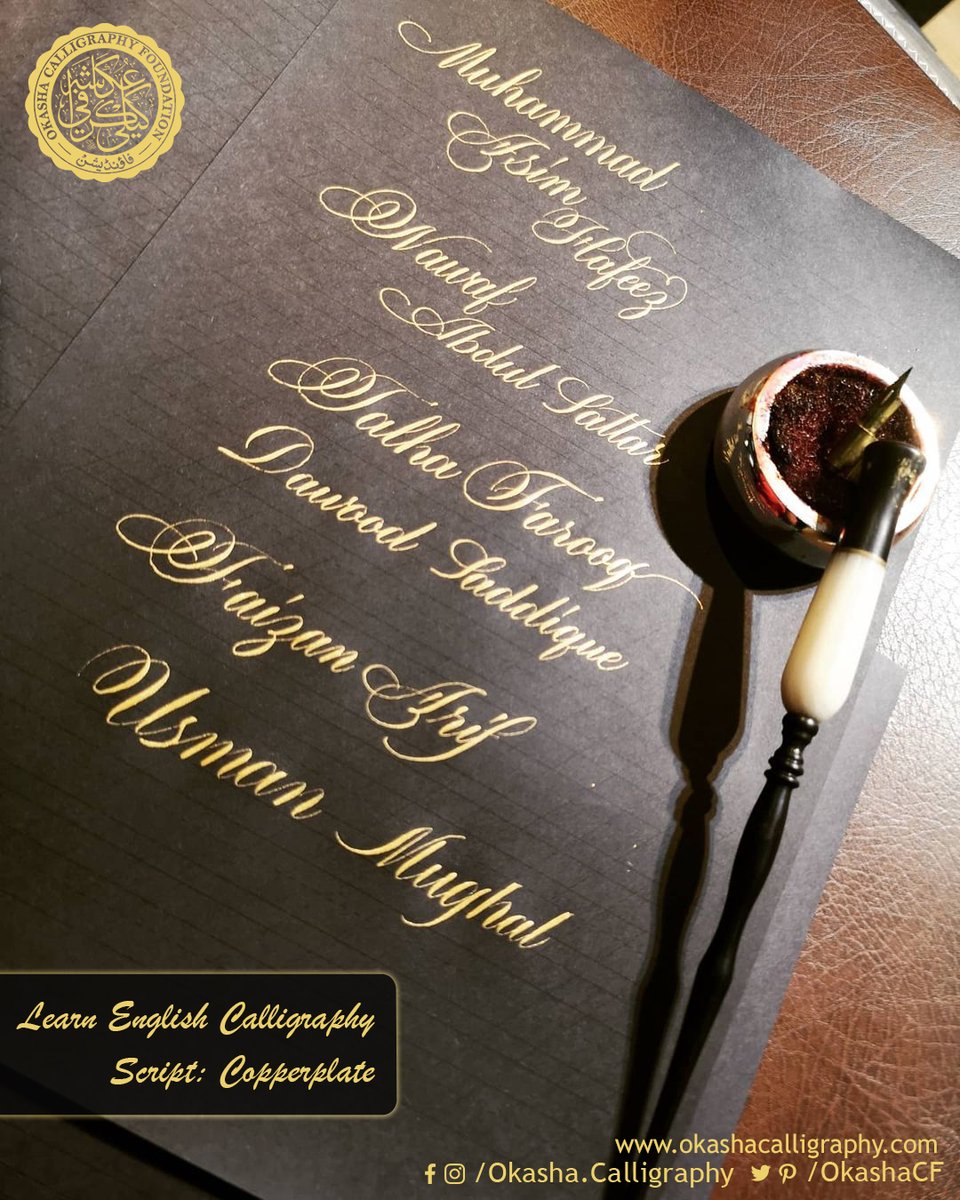 OKASHA CALLIGRAPHY FOUNDATION
فاؤنڈیشن
Muhammad
Asim Hafeez
Nawaf
Abdul Sattar
Talha Farooq
Dawood Saddique
Faizan Arif
Usman Mughal
Learn English Calligraphy
Script: Copperplate
www.okashacalligraphy.com
/Okasha.Calligraphy /OkashaCF